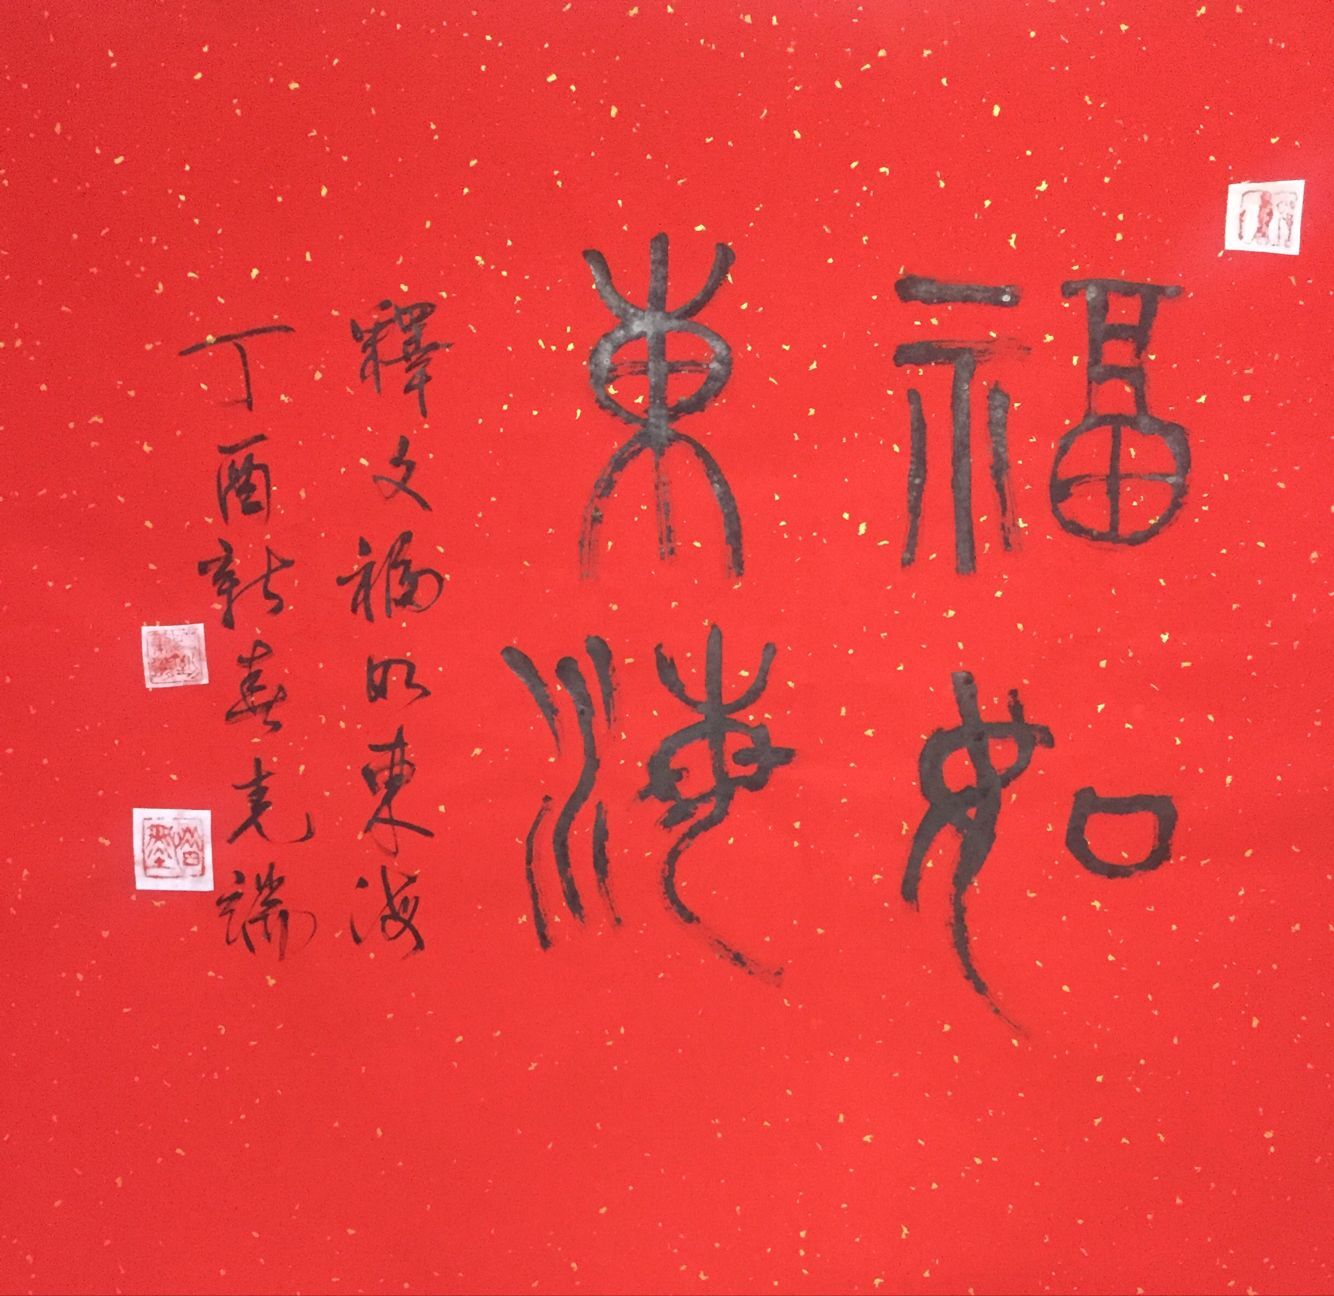 福如
東海
釋文福如東海
丁酉新春克端